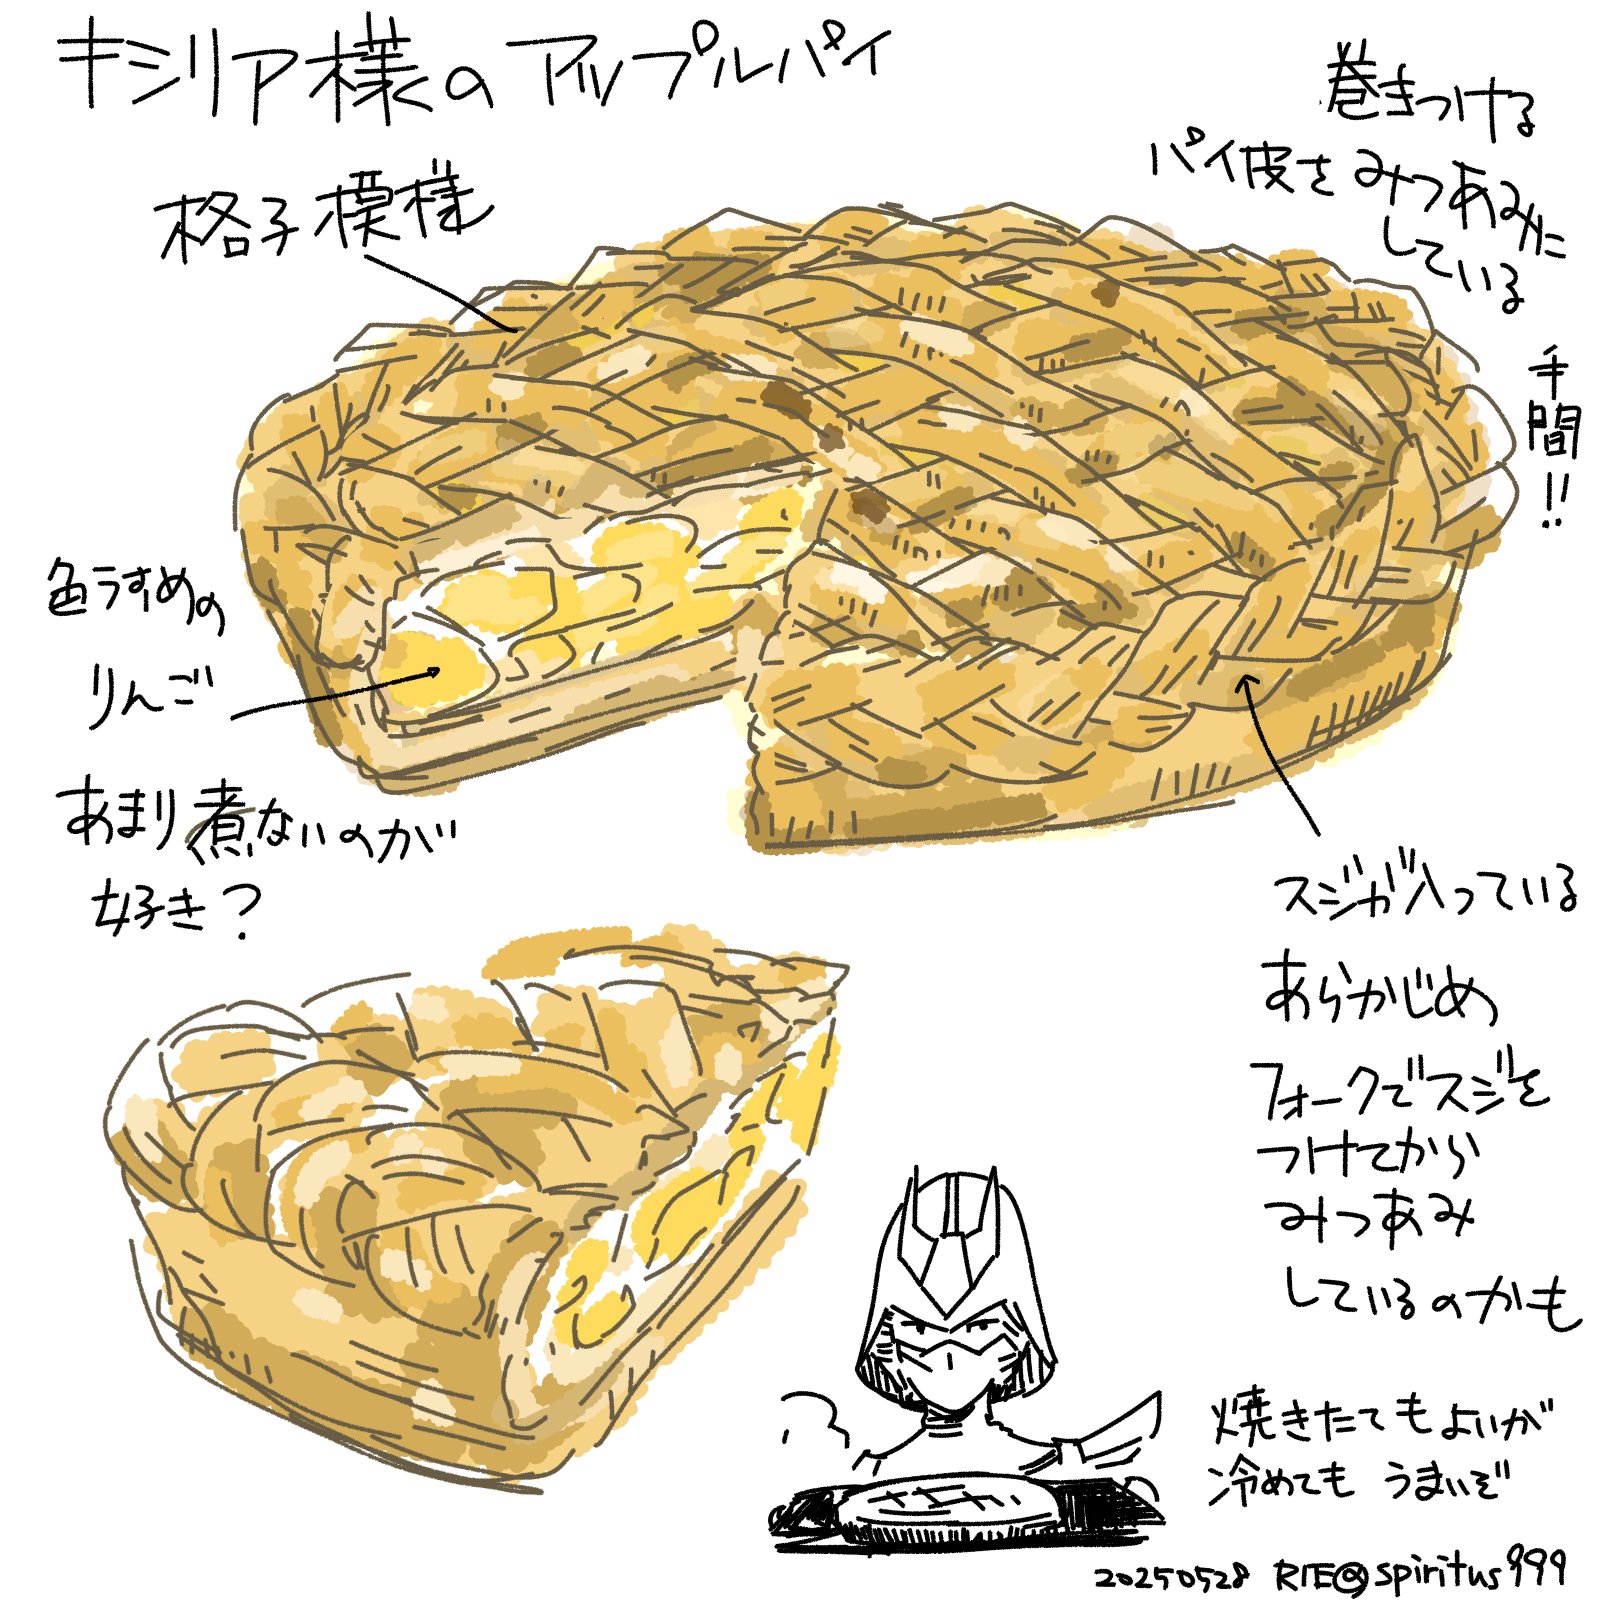 キシリア様のアップルパイ
格子模様
巻きつける
パイ皮をみつあみに
している
手間!!
色うすめの
りんご
あまり煮ないのが
好き?
スジが入っている
あらかじめ
フォークでスジを
つけてから
みつあみ
しているのかも
焼きたてもよいが
冷めてもうまいぞ
20250528 RIE@spiritus999